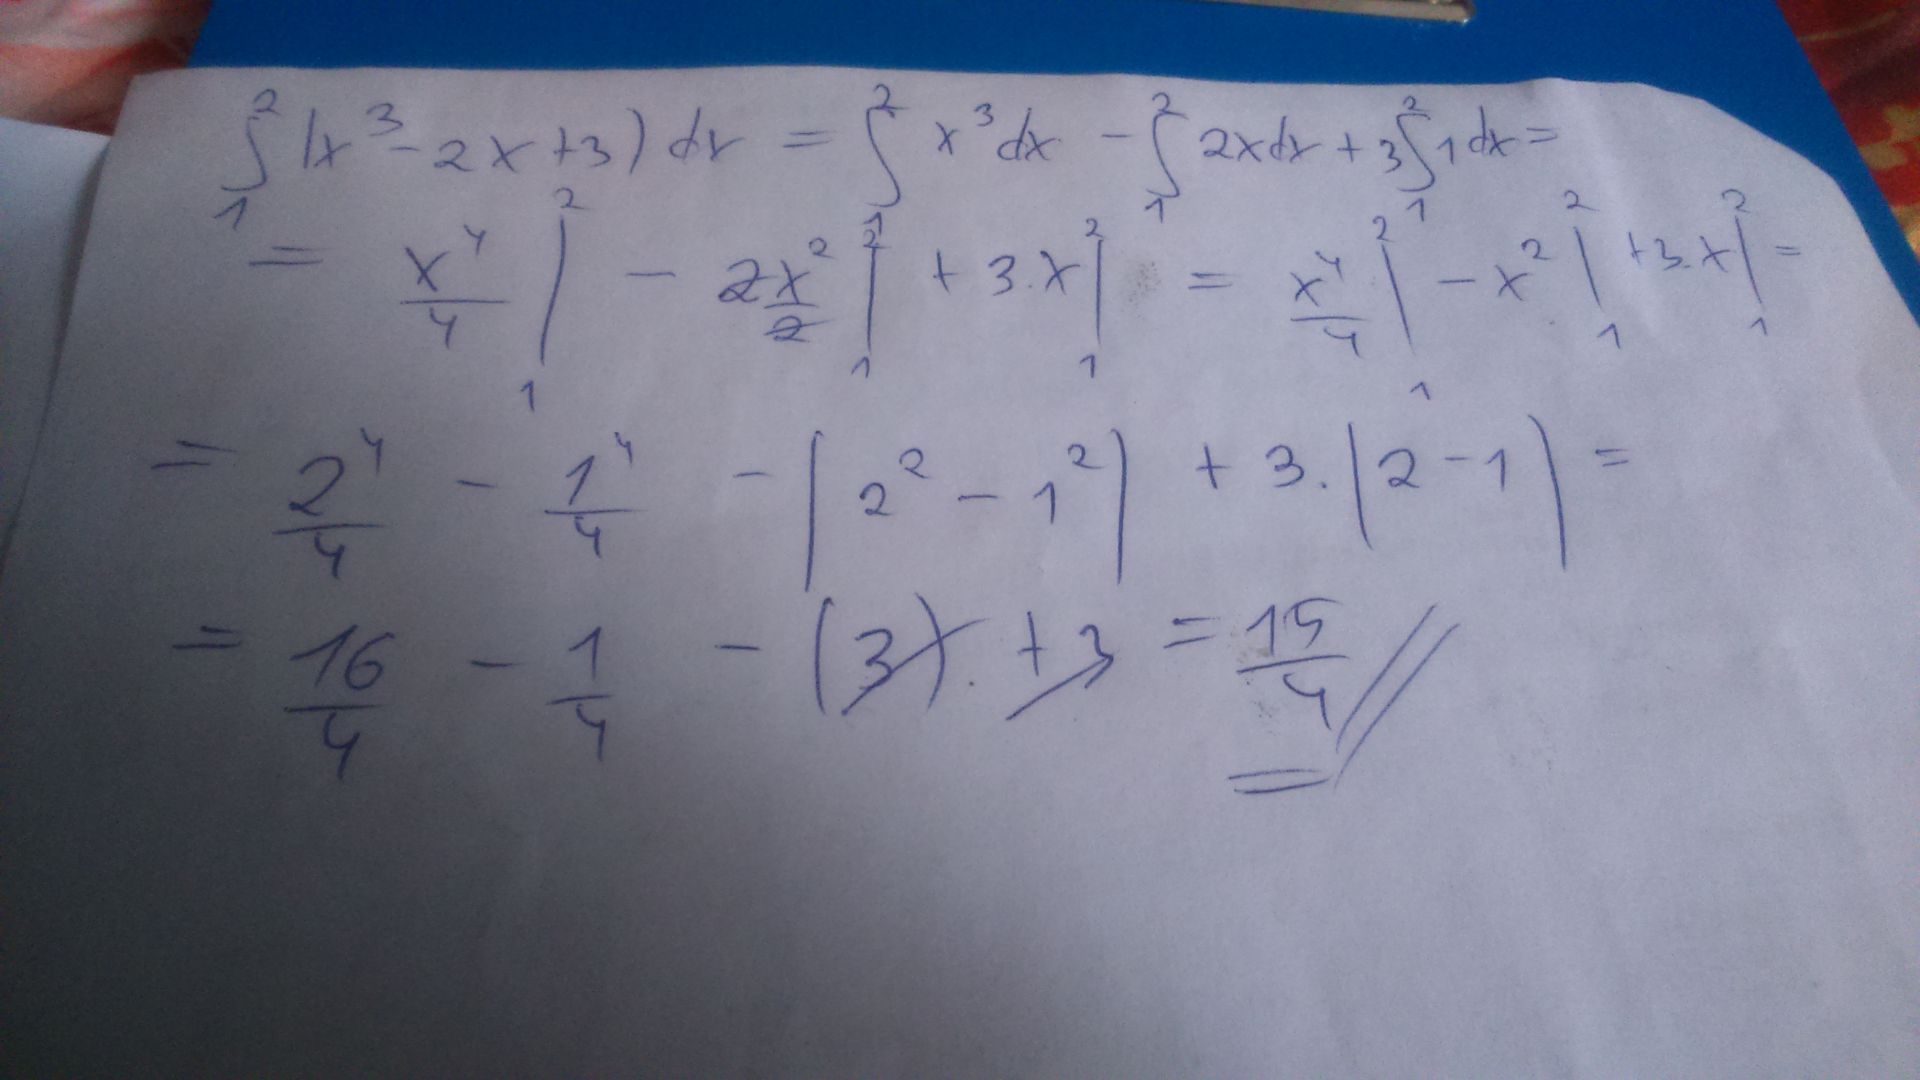 ∫₁² (x³ - 2x + 3) dx = ∫₁² x³ dx - ∫₁² 2x dx + 3 ∫₁² 1 dx =
= x⁴/4 |₁² - 2x²/2 |₁² + 3.x |₁² = x⁴/4 |₁² - x² |₁² + 3.x |₁² =
= 2⁴/4 - 1⁴/4 - (2² - 1²) + 3.(2 - 1) =
= 16/4 - 1/4 - (3) + 3 = 15/4 //